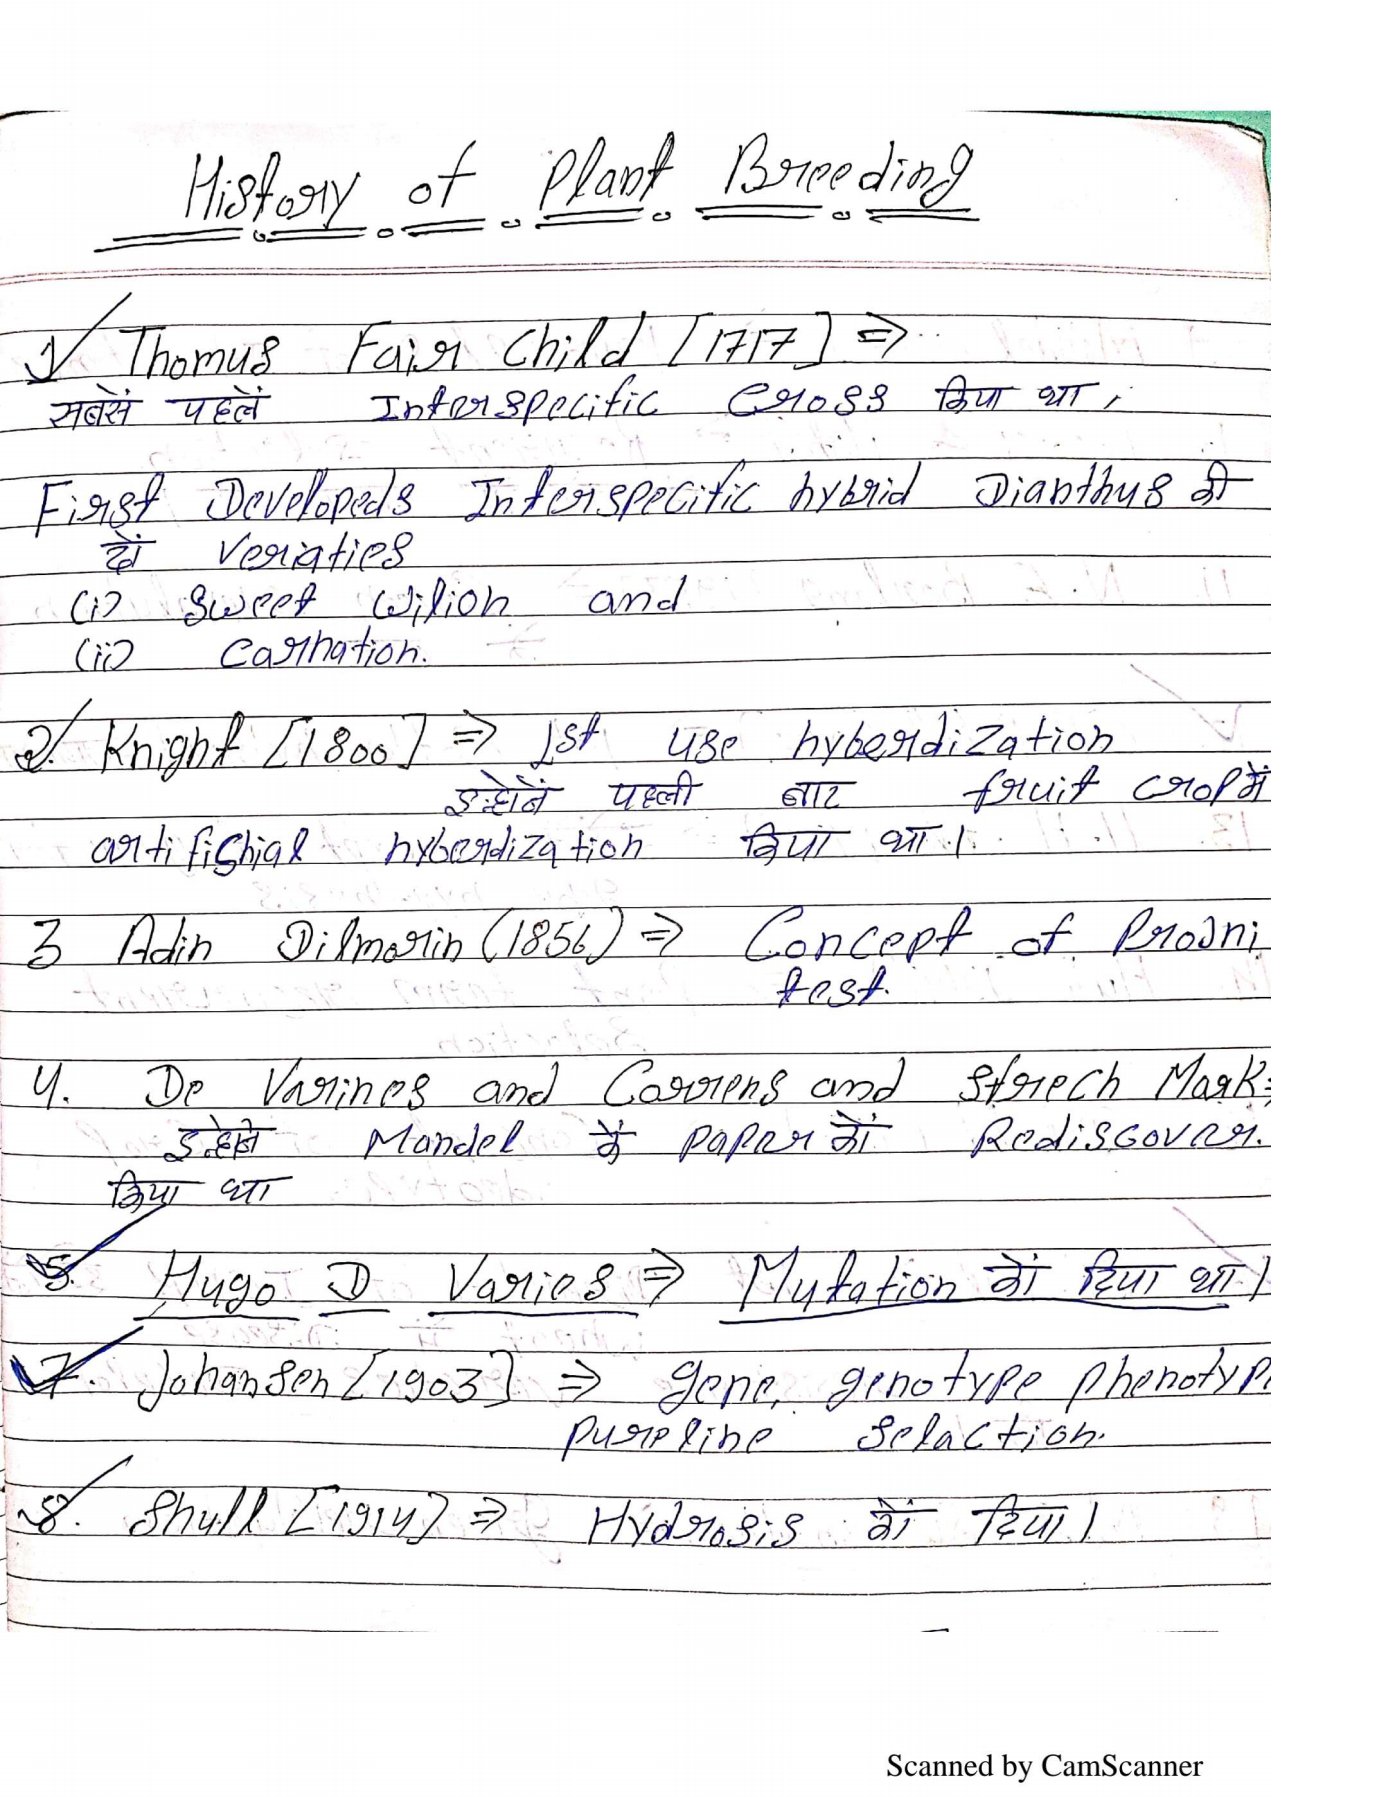 History of Plant Breeding
1 Thomus Fair Child [1717] ⇒
सबसें पहलें Interspecific Cross किया था,
First Developeds Interspecific hybrid Dianthus की
दों Veriaties
(i) Sweet Wilion and
(ii) Carnation.
2. Knight [1800] ⇒ 1st use hyberdization
इन्होनें पहली बार fruit crop में
artifishial hyberdization किया था।
3 Adin Dilmorin (1856) ⇒ Concept of Projni
test.
4. De Varines and Correns and Strech Mark ⇒
इन्होने Mandel के paper कों Rediscover.
किया था
5. Hugo D Varies ⇒ Mutation कों दिया था।
7. Johansen [1903] ⇒ gene, genotype phenotype
pureline Selaction.
8. Shull [1914] ⇒ Hydrosis कों दिया।
Scanned by CamScanner